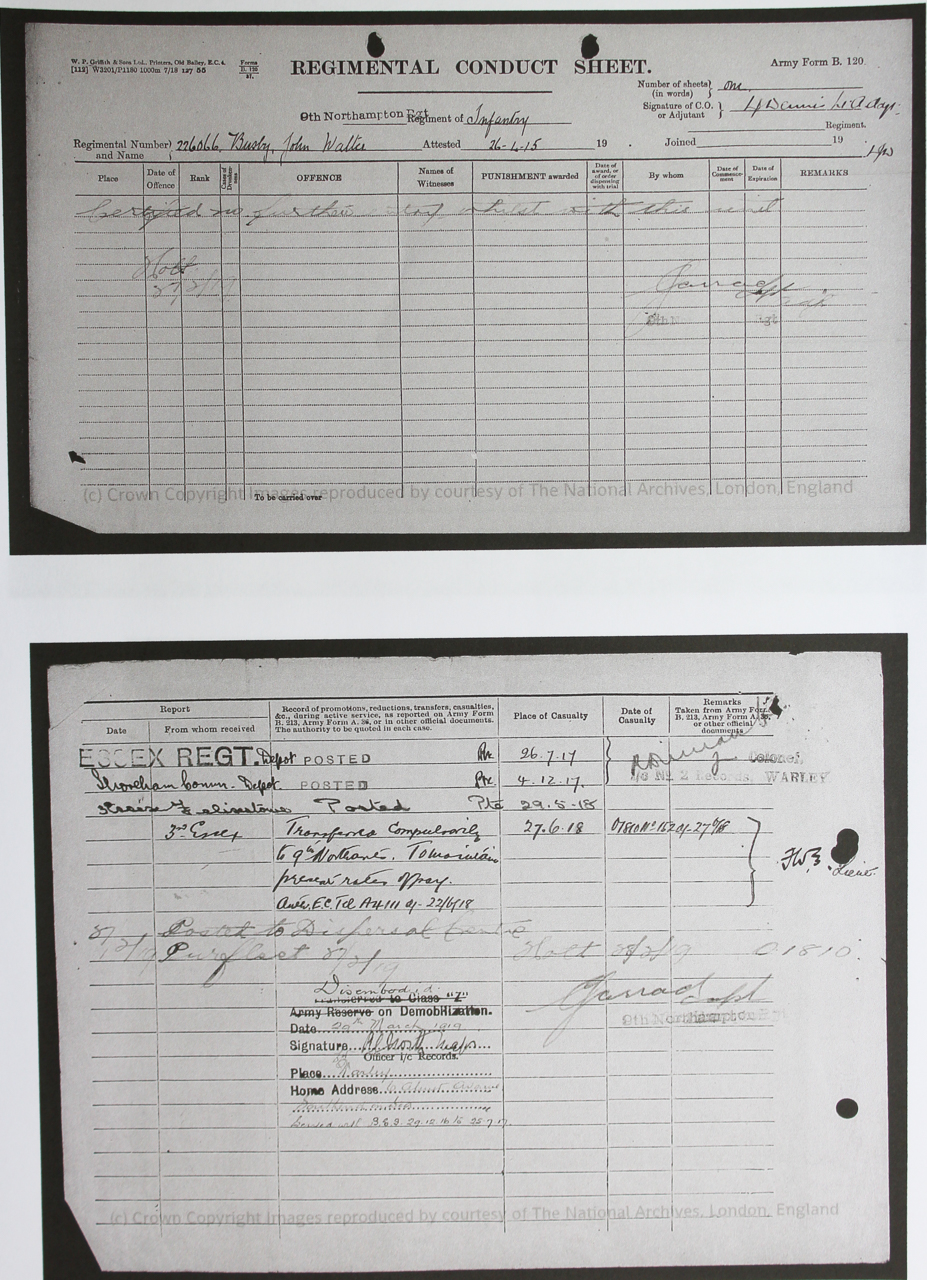 W. P. Griffith & Sons Ltd., Printers, Old Bailey, E.C.4.
[112] W3201/P1180 1000m 7/18 127 55
Forms
B. 120
REGIMENTAL CONDUCT SHEET.
Army Form B. 120
Number of sheets (in words) } one
Signature of C.O. or Adjutant }
9th Northampton Rgt Regiment of Infantry
Regiment.
Regimental Number and Name } 226066, Busby, John Walter Attested 26-4-15 19 . Joined 19
Place
Date of Offence
Rank
Cases of Drunkenness
OFFENCE
Names of Witnesses
PUNISHMENT awarded
Date of award, or of order dispensing with trial
By whom
Date of Commencement
Date of Expiration
REMARKS
Certified no further entry whilst with this unit
Holt
27/2/19
Garrad Capt
9th N Rgt
To be carried over
(c) Crown Copyright Images reproduced by courtesy of The National Archives, London, England
Report
Date
From whom received
Record of promotions, reductions, transfers, casualties, &c., during active service, as reported on Army Form B. 213, Army Form A. 36, or in other official documents. The authority to be quoted in each case.
Place of Casualty
Date of Casualty
Remarks
Taken from Army Form B. 213, Army Form A. 36, or other official documents
ESSEX REGT. Depot POSTED Pte 26.7.17
Colonel,
i/c No 2 Records, WARLEY
Shoreham Comm. Depot POSTED Pte 4.12.17.
Felixstowe Posted Pte 29.5.18
3rd Essex Transferred Compulsorily 27.6.18
to 9th Northants. To maintain
present rates of pay.
Lieut.
Posted to Dispersal Centre
Purfleet Holt 01810.
Disembodied
Transferred to Class "Z"
Army Reserve on Demobilization.
Garrad Capt
9th Northampton Rgt
Date 29th March 1919
Signature North Major
Officer i/c Records.
Place Warley
Home Address
(c) Crown Copyright Images reproduced by courtesy of The National Archives, London, England